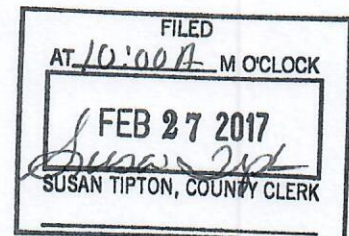 FILED
AT 10:00A M O'CLOCK
FEB 27 2017
Susan Tipt
SUSAN TIPTON, COUNTY CLERK